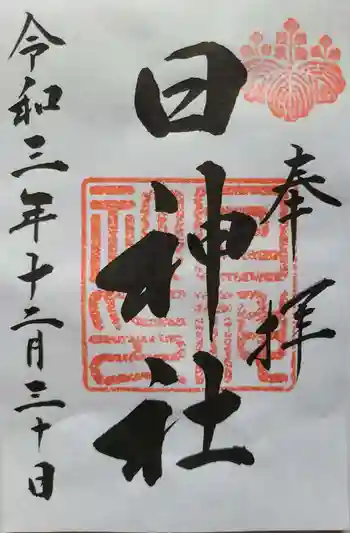 奉拝
日神社
令和三年十二月三十日